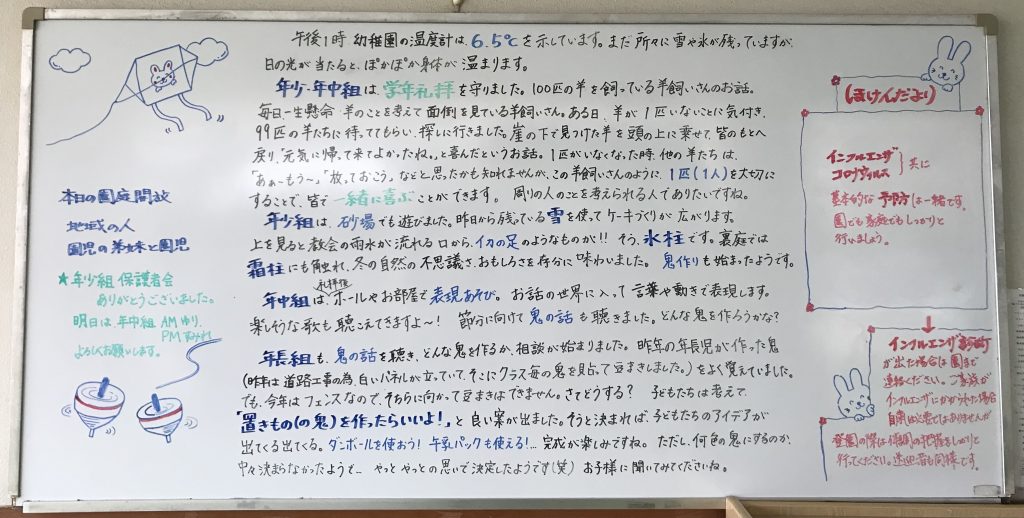 午後1時 幼稚園の温度計は、6.5℃を示しています。まだ所々に雪や氷が残っていますが、
日の光が当たると、ぽかぽか身体が温まります。
年少・年中組は学年礼拝を守りました。100匹の羊を飼っている羊飼いさんのお話。
毎日一生懸命、羊のことを考えて面倒を見ている羊飼いさん。ある日、羊が1匹いないことに気付き、
99匹の羊たちに待っててもらい、探しに行きました。崖の下で見つけた羊を頭の上に乗せて、皆のもとへ
戻り、「元気に帰って来てよかったね。」と喜んだというお話。1匹がいなくなった時、他の羊たちは、
「あぁ〜もう〜」「放っておこう。」などと思ったかも知れませんが、この羊飼いさんのように、1匹(1人)を大切に
することで、皆で一緒に喜ぶことができます。周りの人のことを考えられる人でありたいですね。
年少組は、砂場でも遊びました。昨日から残っている雪を使ってケーキづくりが広がります。
上を見ると教会の雨水が流れる口から、イカの足のようなものが!! そう、氷柱です。裏庭では
霜柱にも触れ、冬の自然の不思議さ、おもしろさを存分に味わいました。鬼作りも始まったようです。
年中組は、礼拝後ホールやお部屋で表現あそび。お話の世界に入って言葉や動きで表現します。
楽しそうな歌も聴こえてきますよ〜! 節分に向けて鬼の話も聴きました。どんな鬼を作ろうかな?
年長組も、鬼の話を聴き、どんな鬼を作るか、相談が始まりました。昨年の年長児が作った鬼
(昨年は道路工事の為、白いパネルが立っていて、そこにクラス毎の鬼を貼って豆まきしました。)をよく覚えていました。
でも、今年はフェンスなので、そちらに向かって豆まきはできません。さてどうする? 子どもたちは考えて、
「置きもの(の鬼)を作ったらいいよ!」と良い案が出ました。そうと決まれば、子どもたちのアイデアが
出てくる出てくる。ダンボールを使おう! 牛乳パックも使える!… 完成が楽しみですね。ただし、何色の鬼にするのか、
中々決まらなかったようで… やっとやっとの思いで決定したようです(笑) お子様に聞いてみてくださいね。
本日の園庭開放
地域の人
園児の弟妹と園児
★年少組 保護者会
ありがとうございました。
明日は、年中組 AMゆり、
PMすみれ
よろしくお願いします。
(ほけんだより)
インフルエンザ
コロナウィルス 共に
基本的な予防は一緒です。
園でも家庭でもしっかりと
行いましょう。
インフルエンザ診断
が出た場合は園まで
連絡ください。ご家族が
インフルエンザにかかった場合
登園の際は
行ってください。送迎者も同様です。